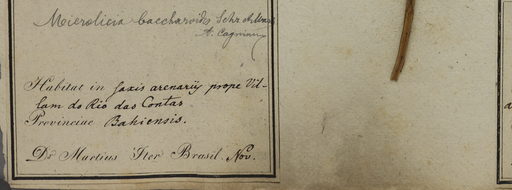 Microlicia baccharoides Schr et Mart
A. Cogniaux
Habitat in saxis arenariis prope Vil-
lam do Rio das Contas
Provinciae Bahiensis.
Dr Martius Iter Brasil. Nov.